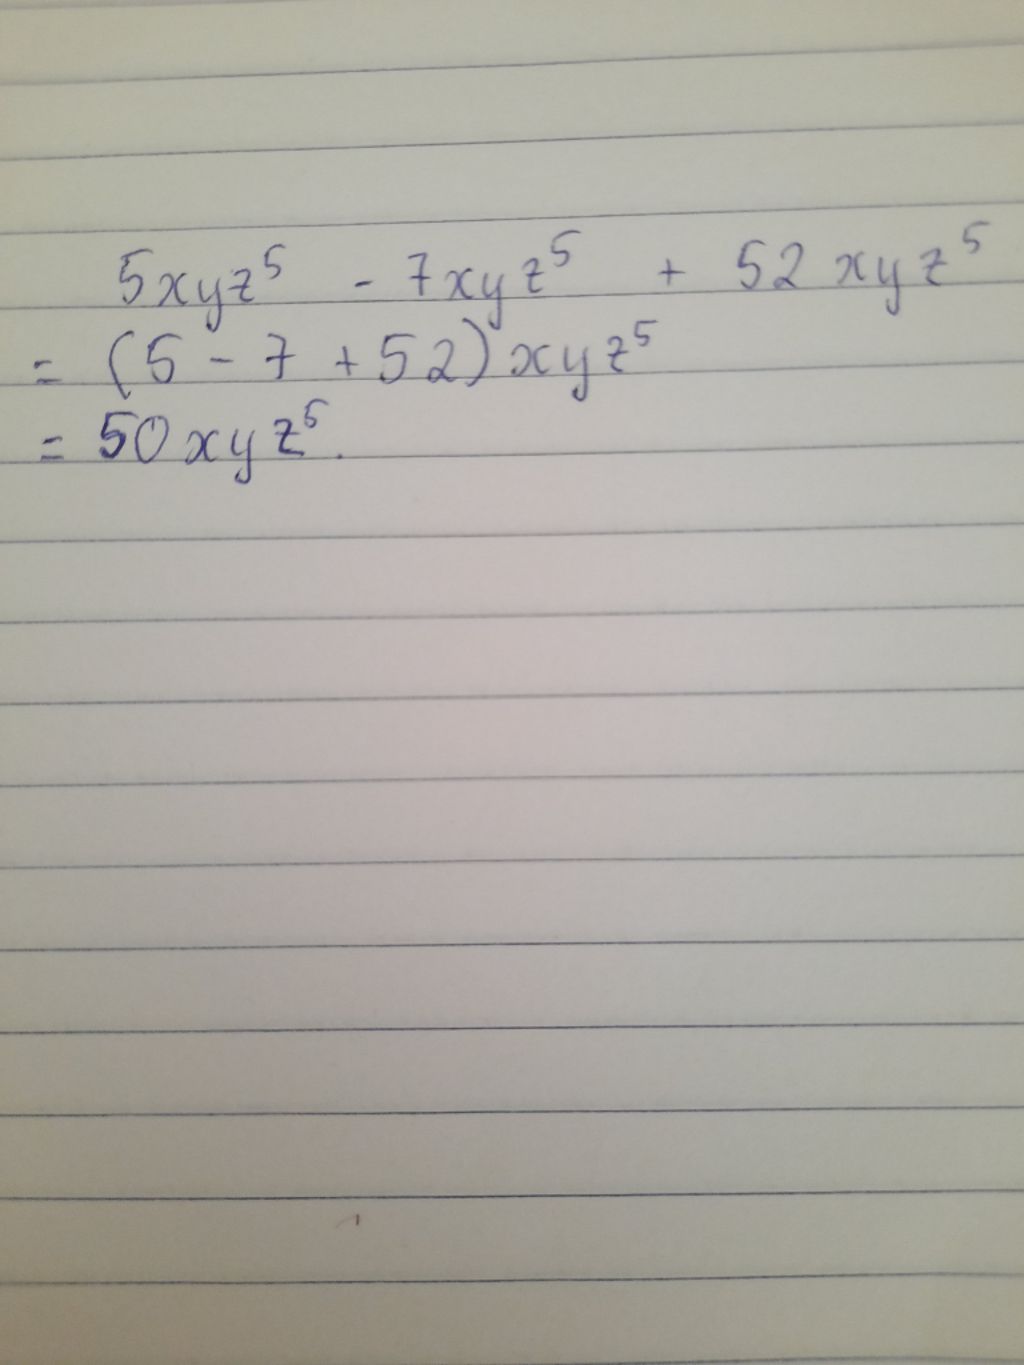 5xyz⁵ - 7xyz⁵ + 52xyz⁵
= (5 - 7 + 52)xyz⁵
= 50xyz⁵.